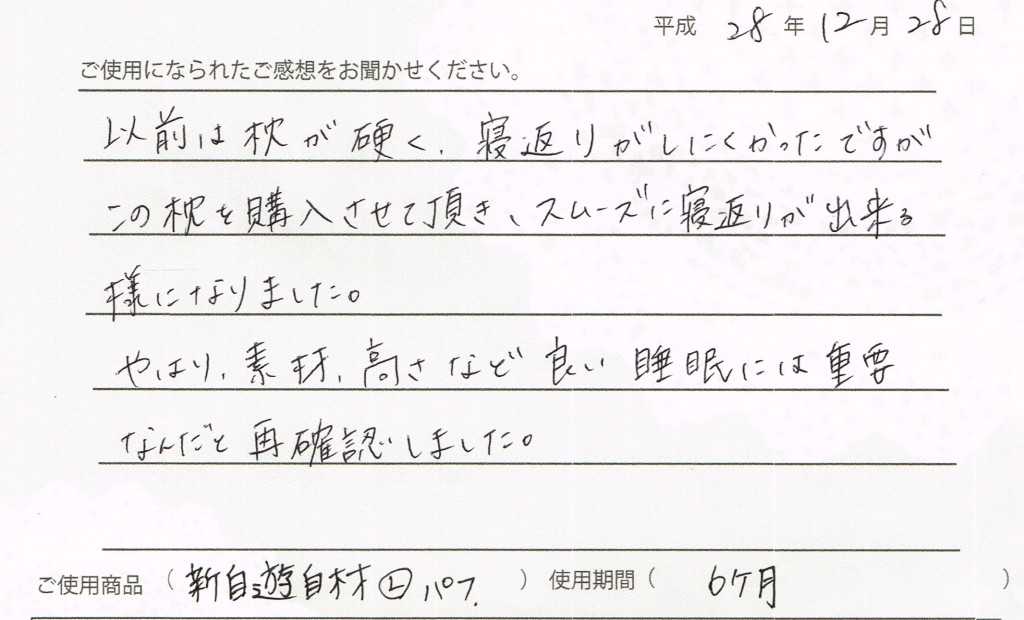 平成 28 年 12 月 28 日
ご使用になられたご感想をお聞かせください。
以前は枕が硬く、寝返りがしにくかったですが
この枕を購入させて頂き、スムーズに寝返りが出来る
様になりました。
やはり、素材、高さなど良い睡眠には重要
なんだと再確認しました。
ご使用商品 ( 新自遊自材㊀パフ ) 使用期間 ( 6ケ月 )